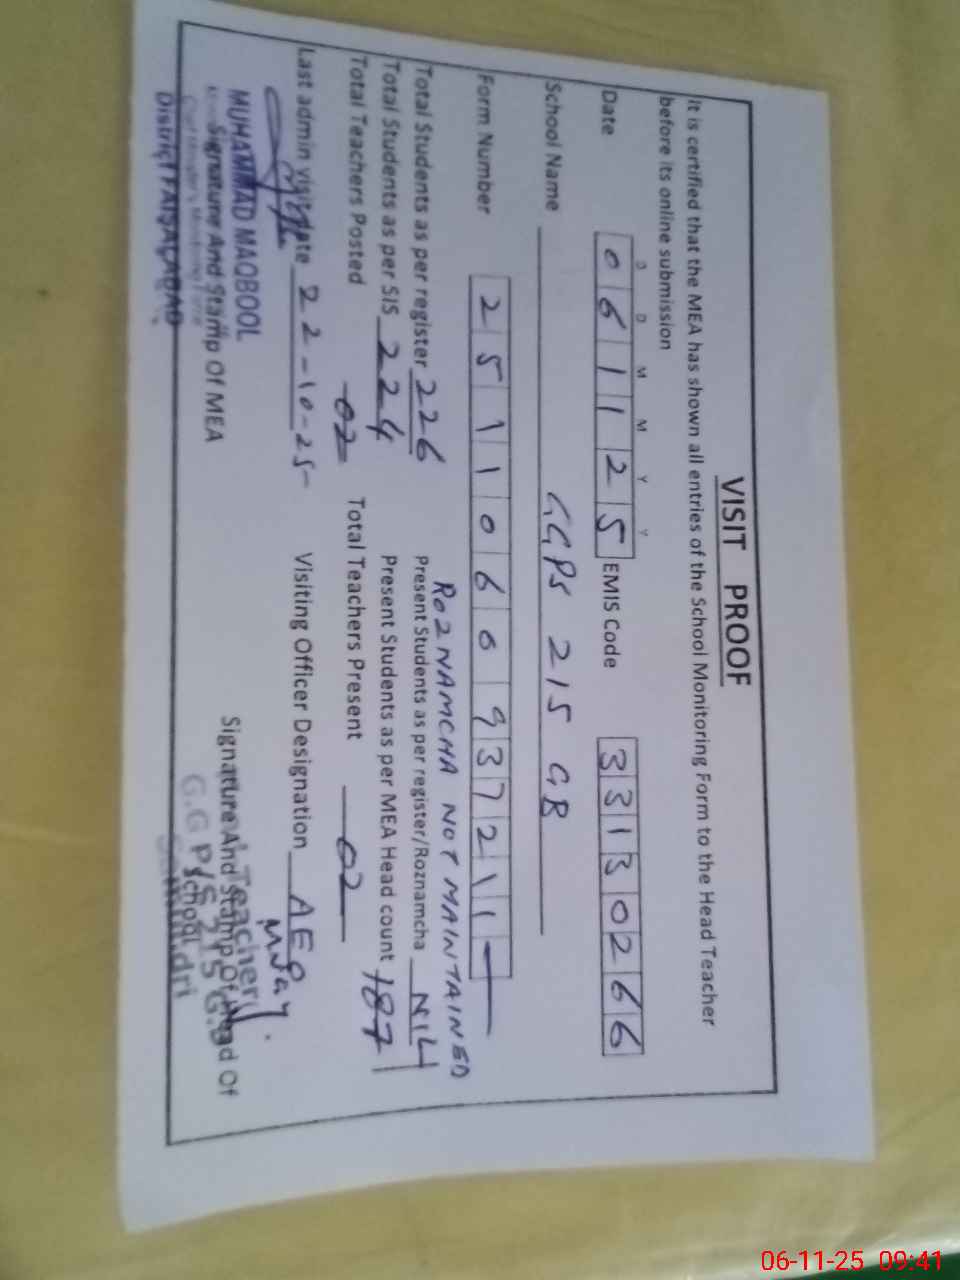 VISIT PROOF
It is certified that the MEA has shown all entries of the School Monitoring Form to the Head Teacher
before its online submission
D D M M Y Y
Date 0 6 1 1 2 5 EMIS Code 3 3 1 3 0 2 6 6
School Name GGPS 215 GB
Form Number 2 5 1 1 0 6 6 0 9 3 7 2 1 1 -
ROZNAMCHA NOT MAINTAINED
Total Students as per register 226 Present Students as per register/Roznamcha NIL
Total Students as per SIS 224 Present Students as per MEA Head count 187
Total Teachers Posted 02 Total Teachers Present 02
Last admin visit date 22-10-25 Visiting Officer Designation AEO
MUHAMMAD MAQBOOL
Signature And Stamp Of MEA
District FAISALABAD
Signature And Stamp Of Head Of
School
Teacher
G.G P/S 215 G.B
06-11-25 09:41